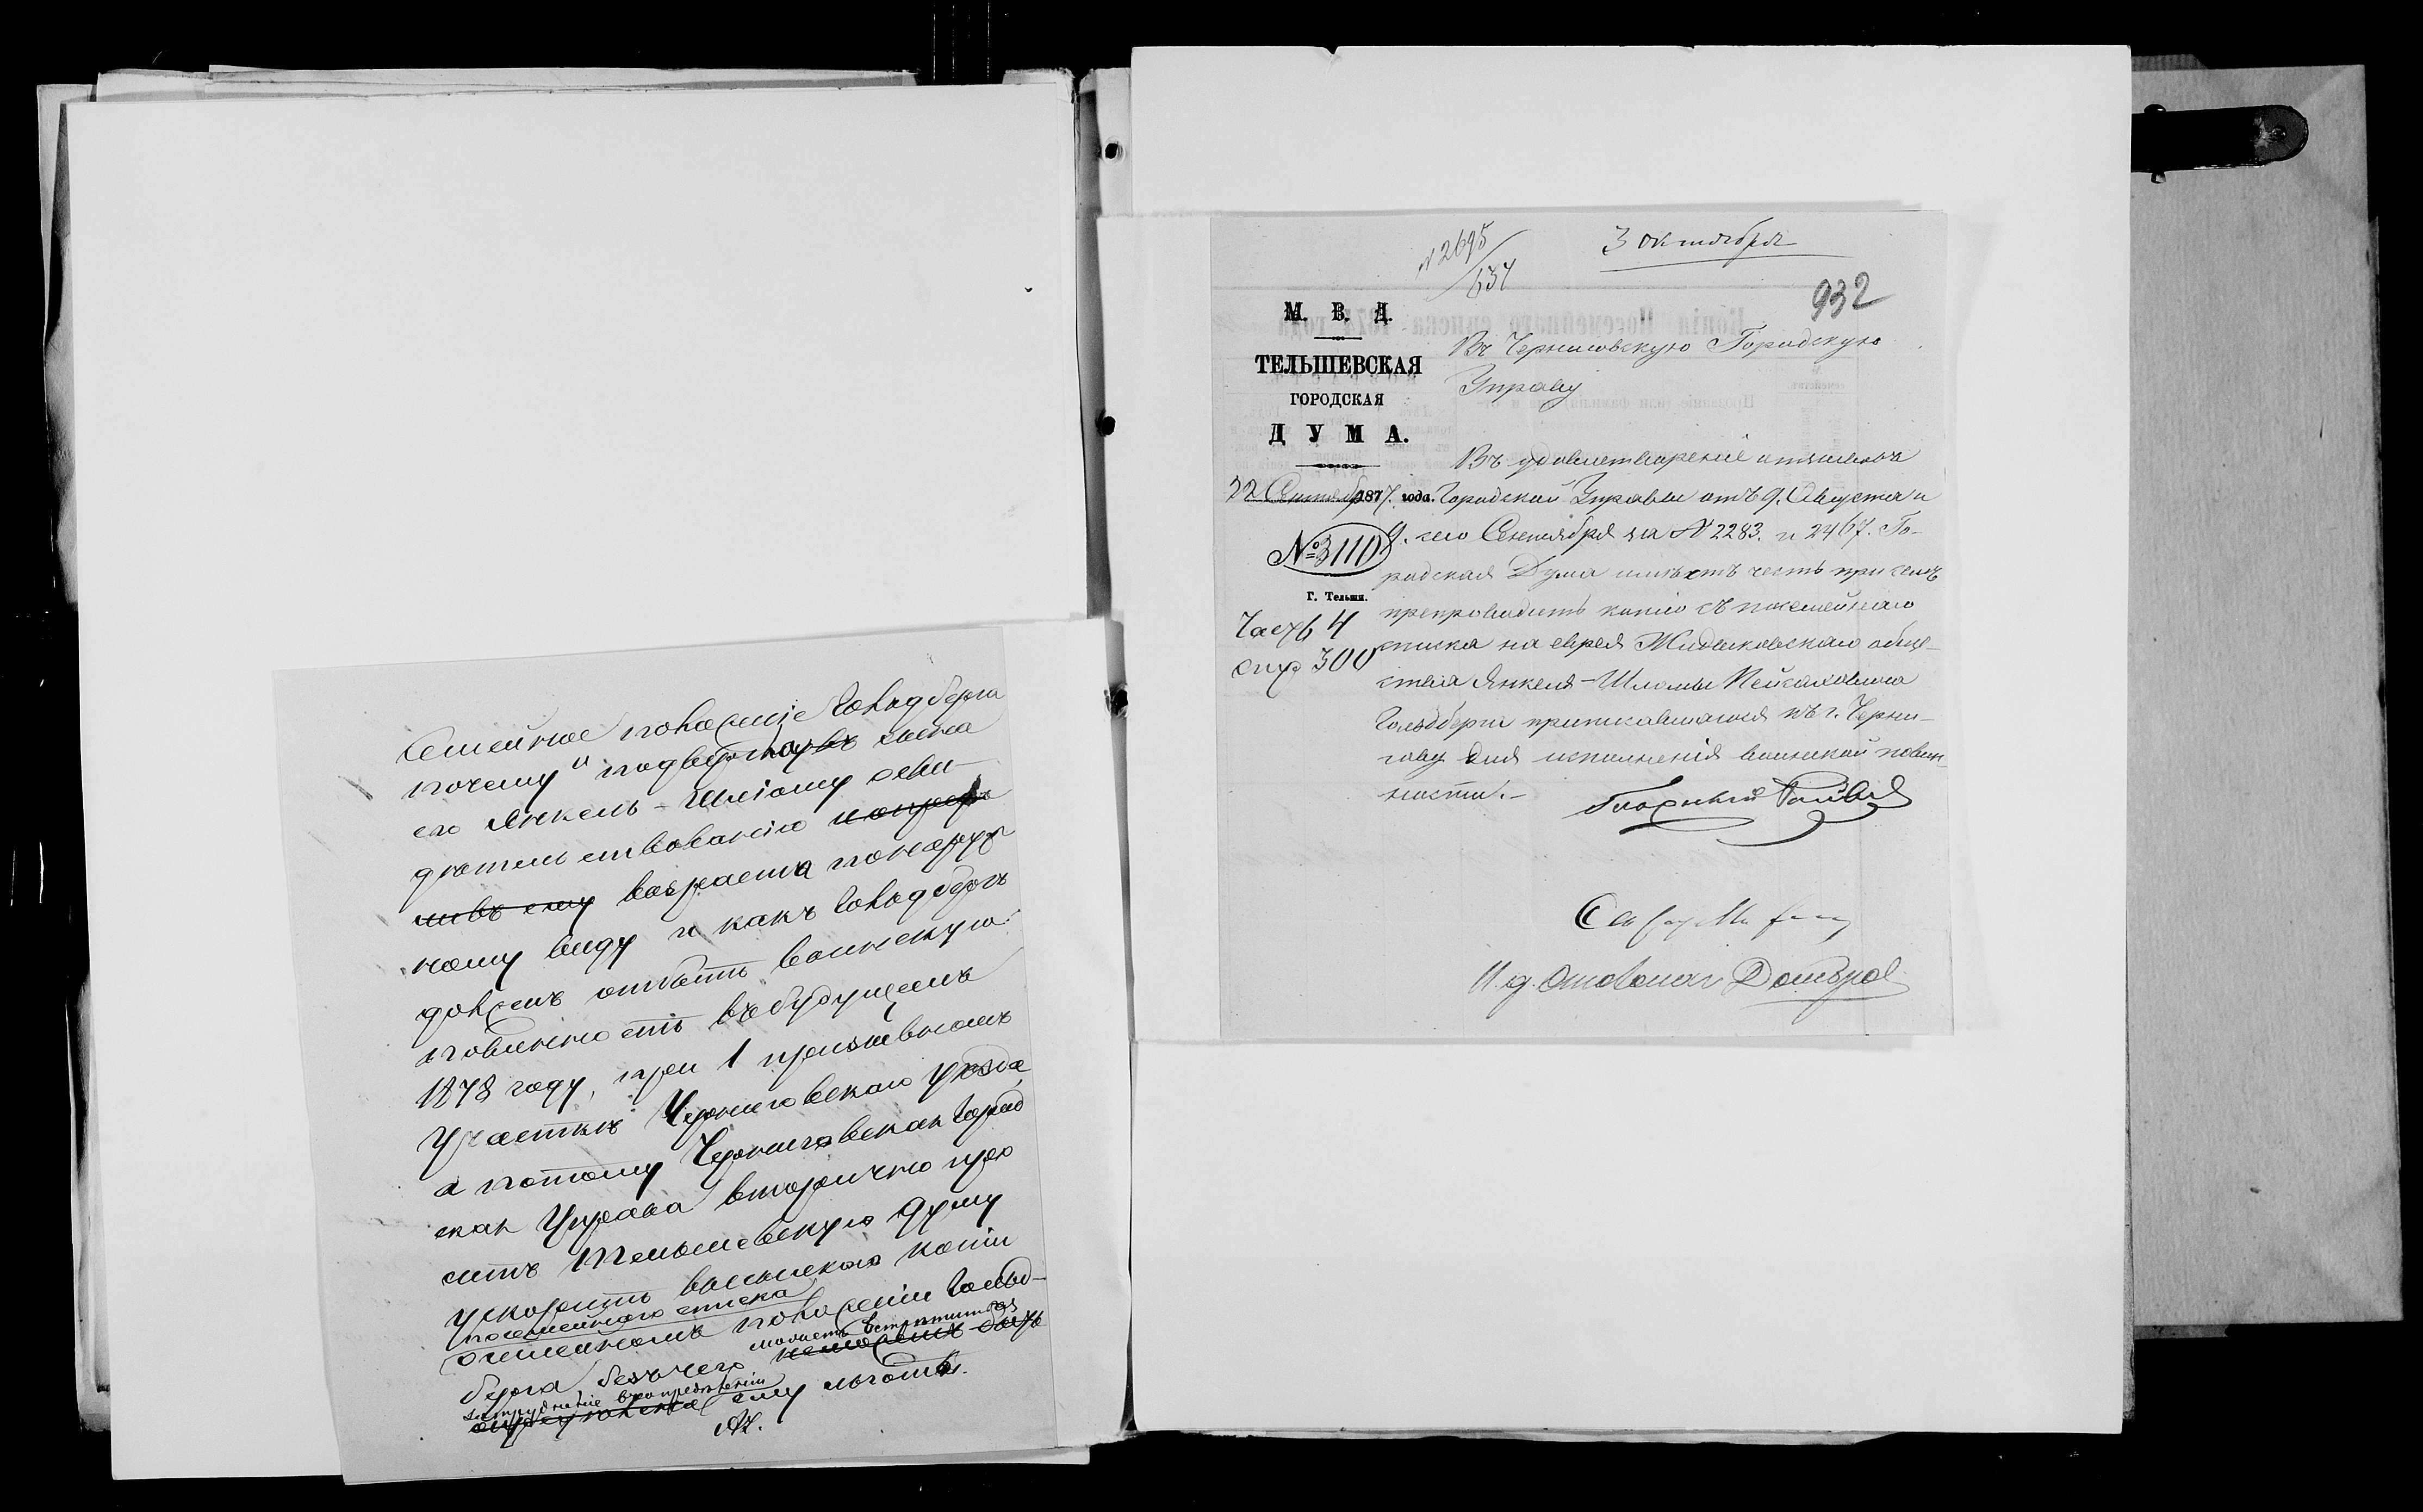 Семейное положеніе Гольдберга
почему и подвергнувъ сына
его Янкель-Шліому осви-
дѣтельствованію
возраста по наруж
ному виду и какъ Гольдбергъ
долженъ отбыть воинскую
повинность въ будущемъ
1878 году, при 1 призывномъ
участкѣ Черниговскаго уѣзда,
а потому Черниговская Город
ская Управа вторично про
ситъ Тельшевскую Думу
ускорить высылкою копіи
посемейнаго списка
о семейномъ положеніи Гольд-
можетъ встрѣтиться
берга безъ чего
затрудненіе въ опредѣленіи
ему льготы.
№ 2695/634
3 октября
932
М. В. Д.
ТЕЛЬШЕВСКАЯ
ГОРОДСКАЯ
ДУМА.
22 Сентября 1877. года.
№ 3110
Г. Тельши.
Часть 4
стр 300
Въ Черниговскую Городскую
Управу
Въ удовлетвореніе отзывовъ
Городской Управы отъ 9. Августа и
9. сего Сентября за № 2283. и 2467. Го-
родская Дума имѣетъ честь при семъ
препроводить копію съ посемейнаго
списка на еврея Жидыковскаго обще-
ства Янкеля-Шломы Пейсаховича
Гольдберга приписавшагося къ г. Черни-
гову для исполненія воинской повин-
ности.-
Гласный
И. д.